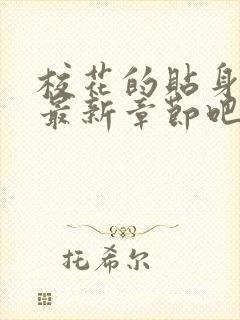 校花的贴身
最新章节吧
托希尔